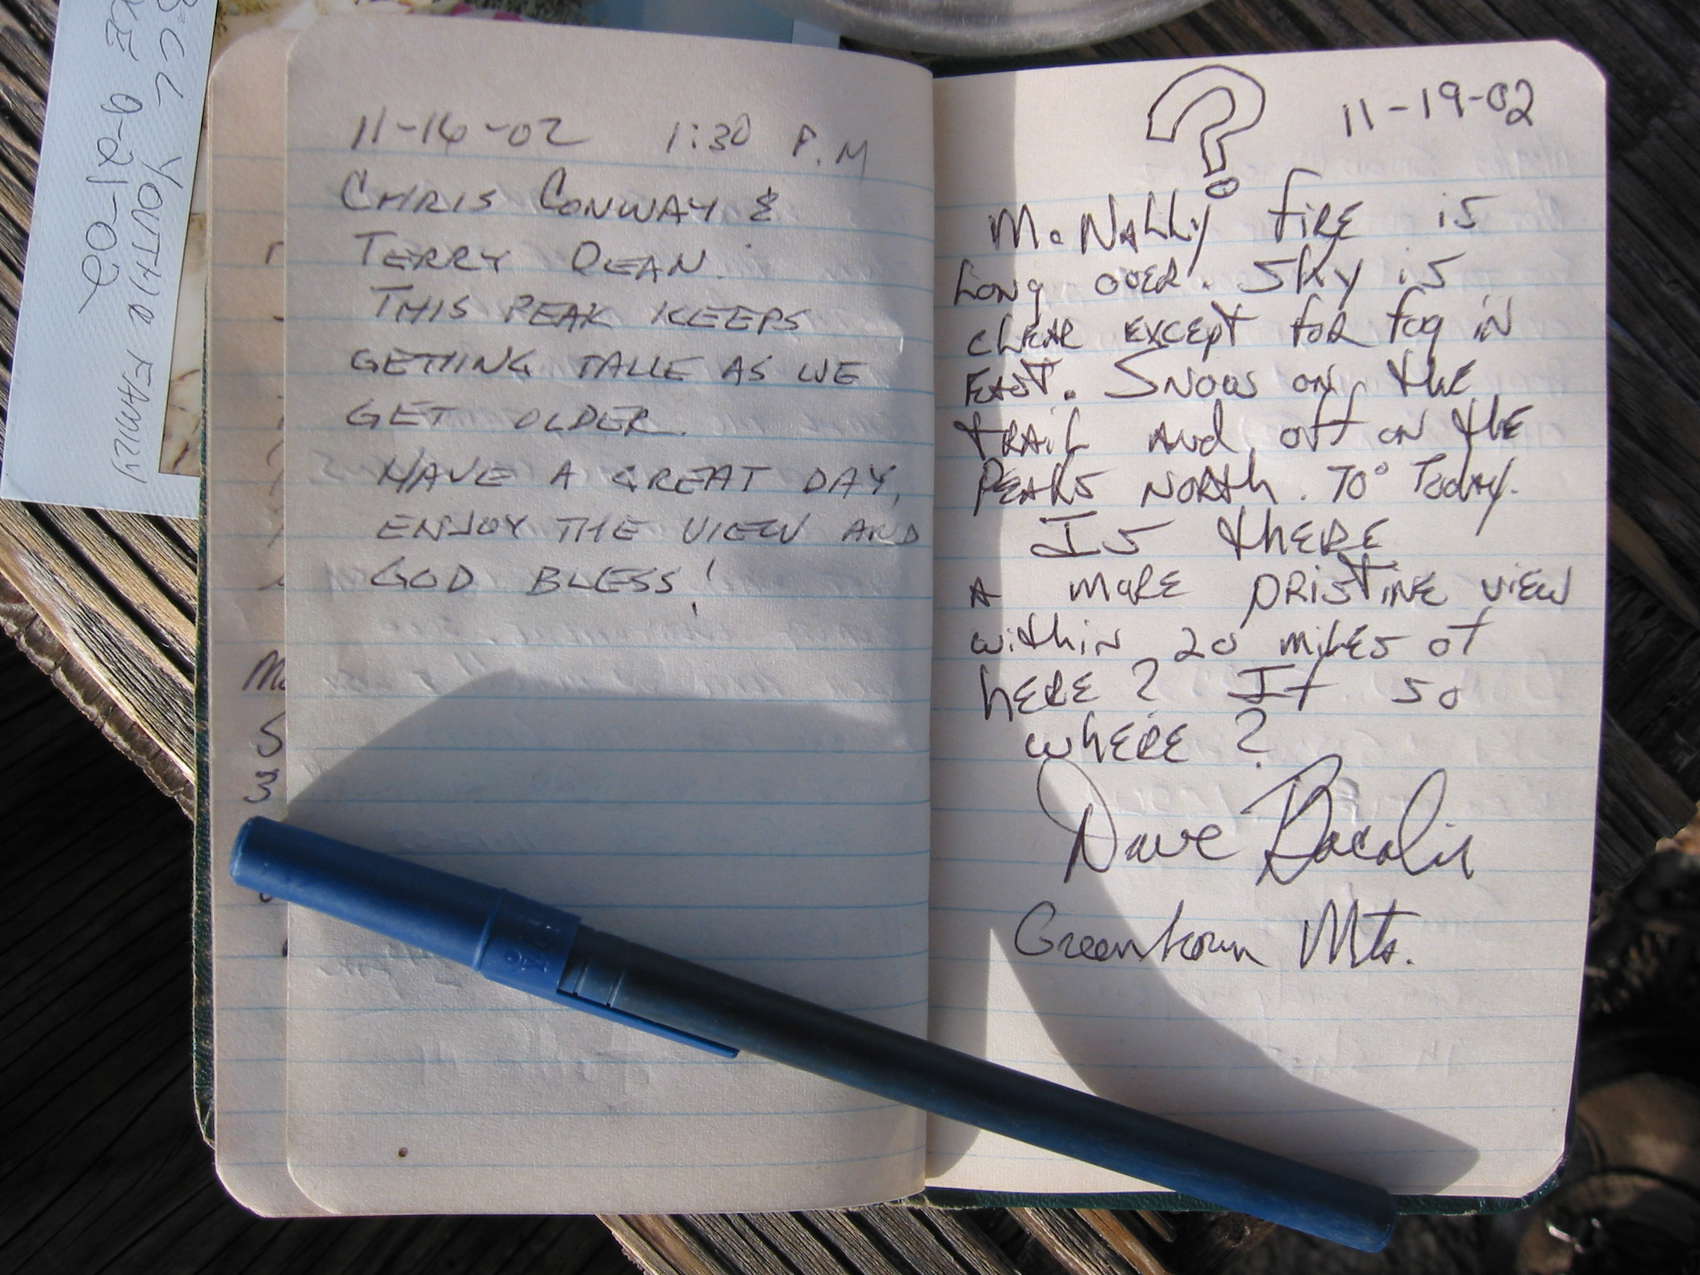 11-16-02 1:30 P.M
CHRIS CONWAY &
TERRY DEAN.
THIS PEAK KEEPS
GETTING TALLE AS WE
GET OLDER.
HAVE A GREAT DAY,
ENJOY THE VIEW AND
GOD BLESS!
? 11-19-02
McNALLY FIRE is
Long over. Sky is
clear except for fog in
East. Snow on the
trail and off on the
Peaks North. 70° Today.
Is there
A more pristine view
within 20 miles of
here? If so
where?
Dave
Greenhorn Mts.
YOUTH & FAMILY
9-21-02